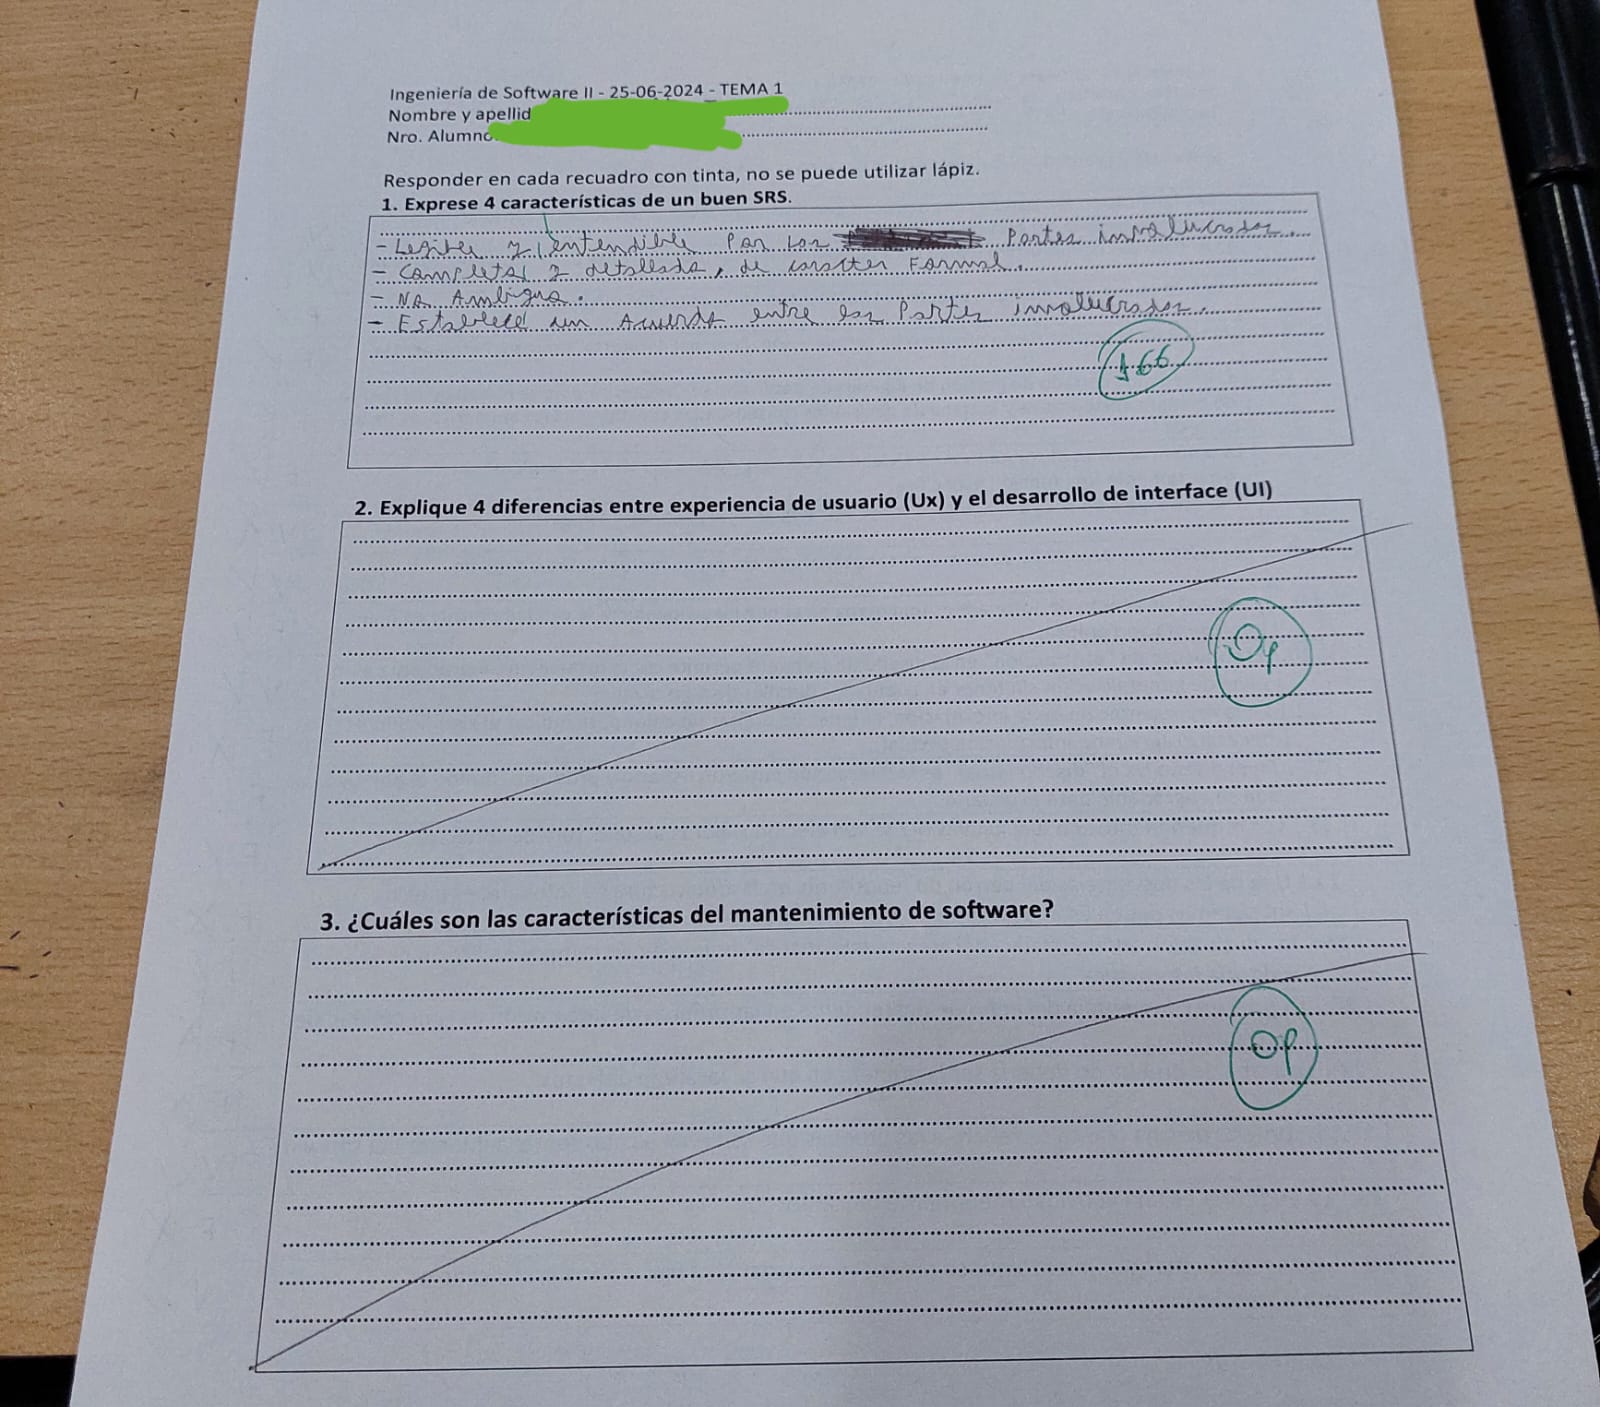 Ingeniería de Software II - 25-06-2024 - TEMA 1
Nombre y apellid
Nro. Alumno.
Responder en cada recuadro con tinta, no se puede utilizar lápiz.
1. Exprese 4 características de un buen SRS.
- Legible y entendible por las Partes involucradas.
- Completa y detallada, de caracter Formal.
- No Ambigua.
- Establece un Acuerdo entre las Partes involucradas.
1.66
2. Explique 4 diferencias entre experiencia de usuario (Ux) y el desarrollo de interface (UI)
0p
3. ¿Cuáles son las características del mantenimiento de software?
0p